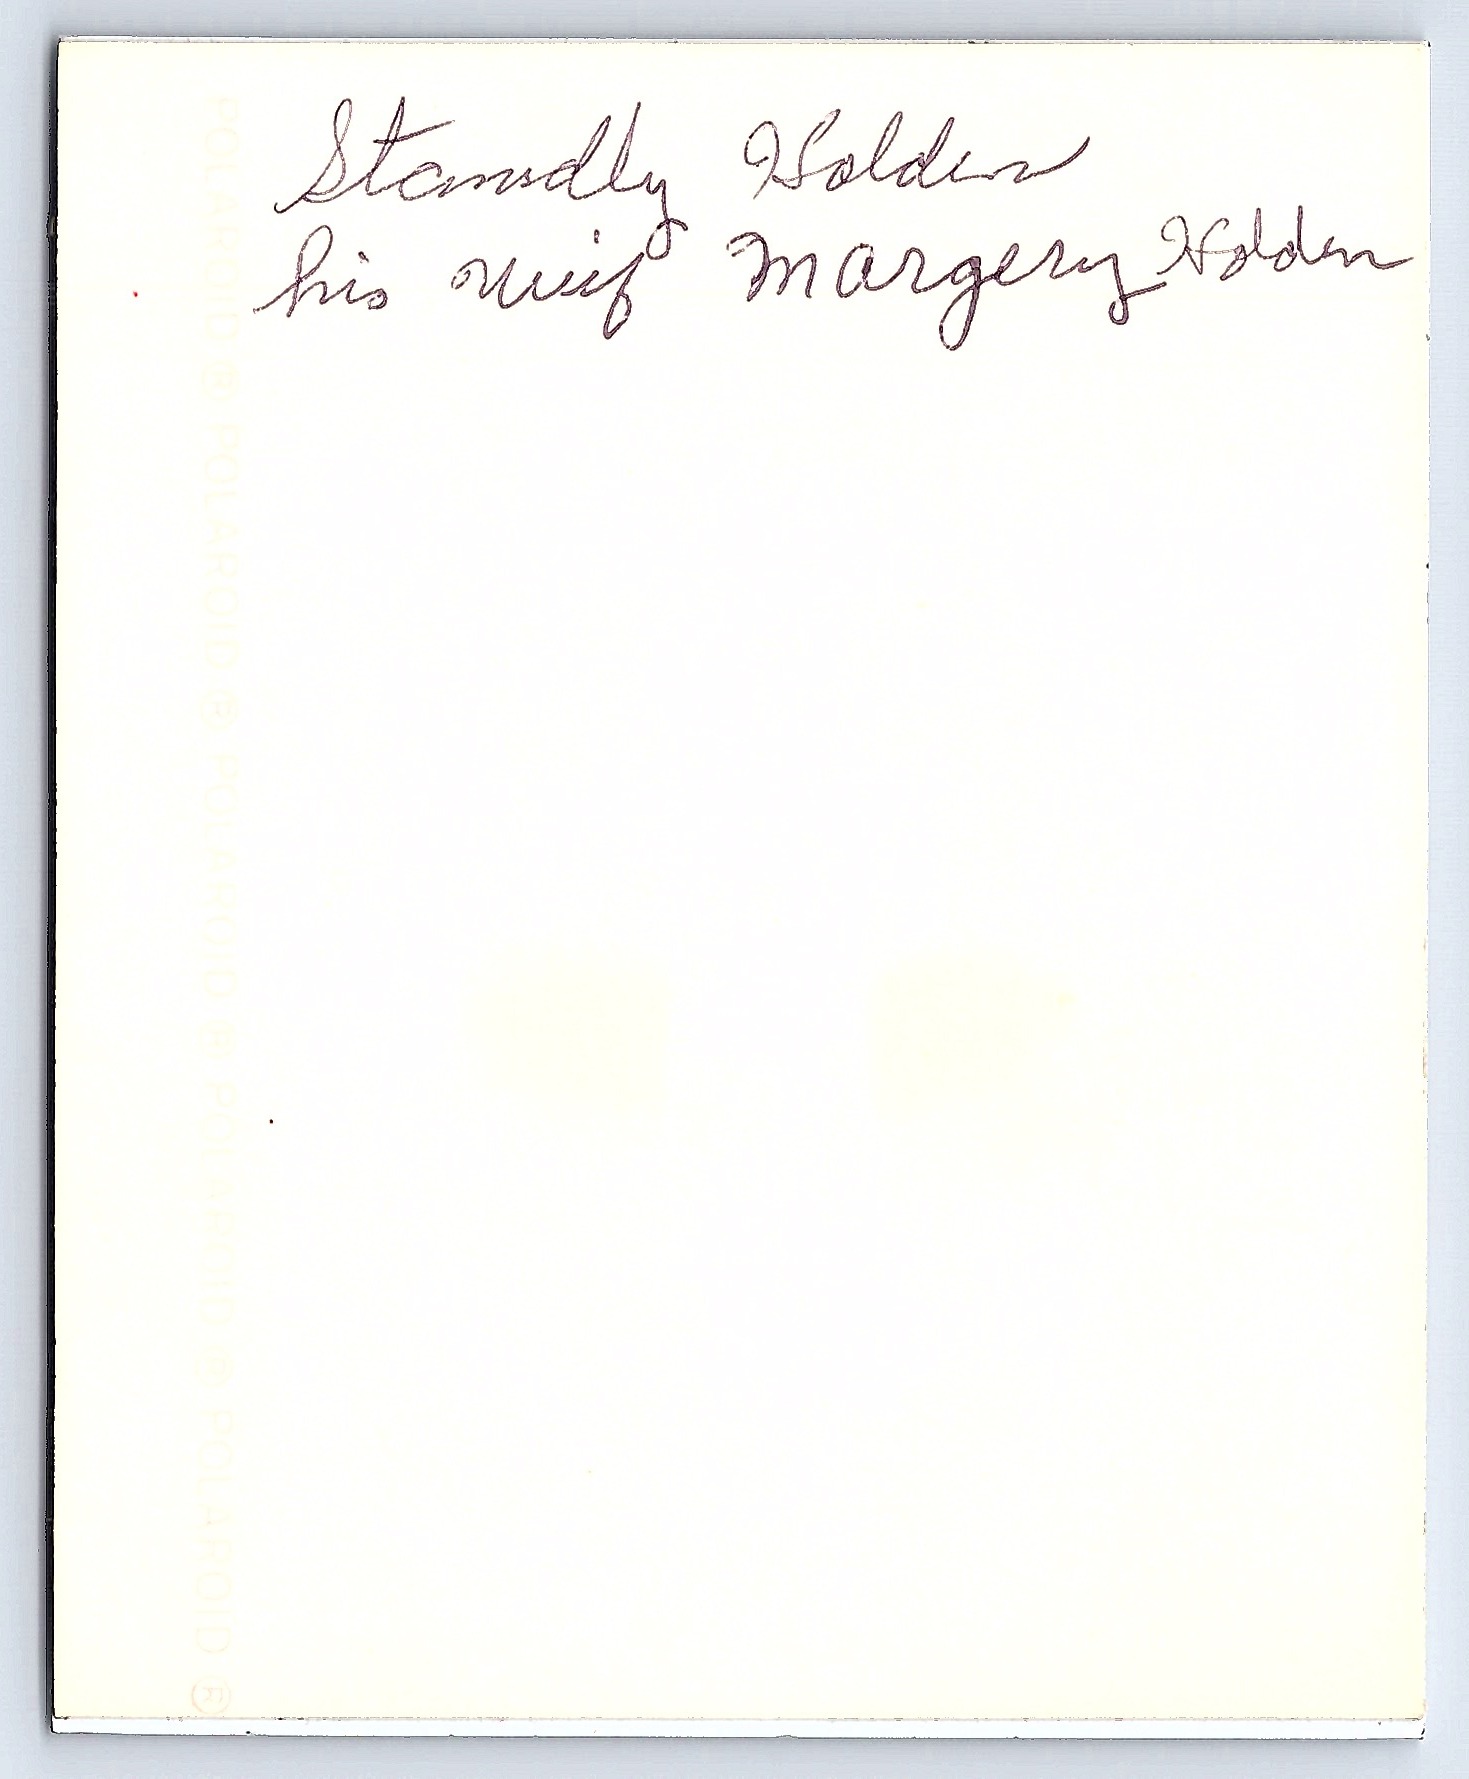 Standly Holden
his wif Margery Holden
POLAROID ® POLAROID ® POLAROID ® POLAROID ® POLAROID ®